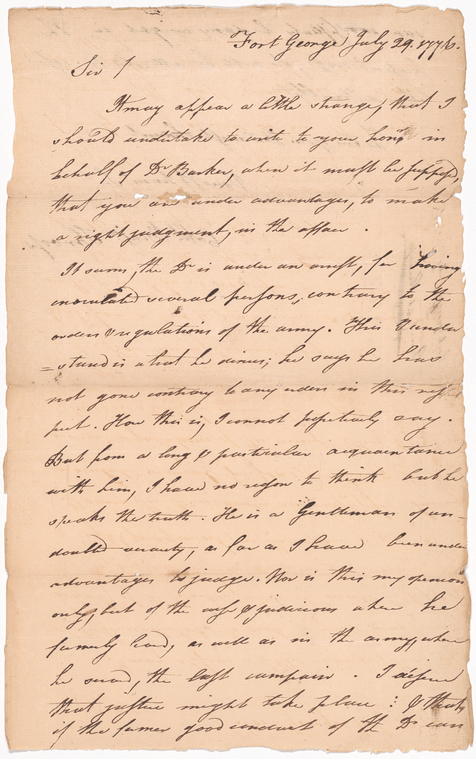 Fort George July 29. 1776.
Sir /
It may appear a little strange, that I
should undertake to write to your honr in
behalf of Dr Barker, when it must be suppos'd,
that you are under advantages, to make
a right judgment, in the affair.
It seems, the Dr is under an arrest, for having
inoculated several persons, contrary to the
orders & regulations of the army. This I under
=stand is what he denies; he says he has
not gone contrary to any orders in this res
pect. How this is, I cannot positively say.
But from a long & particular acquaintance
with him, I have no reason to think but he
speaks the truth. He is a Gentleman of un-
doubted veracity, as far as I have been under
advantages to judge. Nor is this my opinion
only, but of the wise & judicious where he
formerly lived, as well as in the army, where
he serv'd, the last campain. I desire
that justice might take place: & that
if the former good conduct of the Dr can